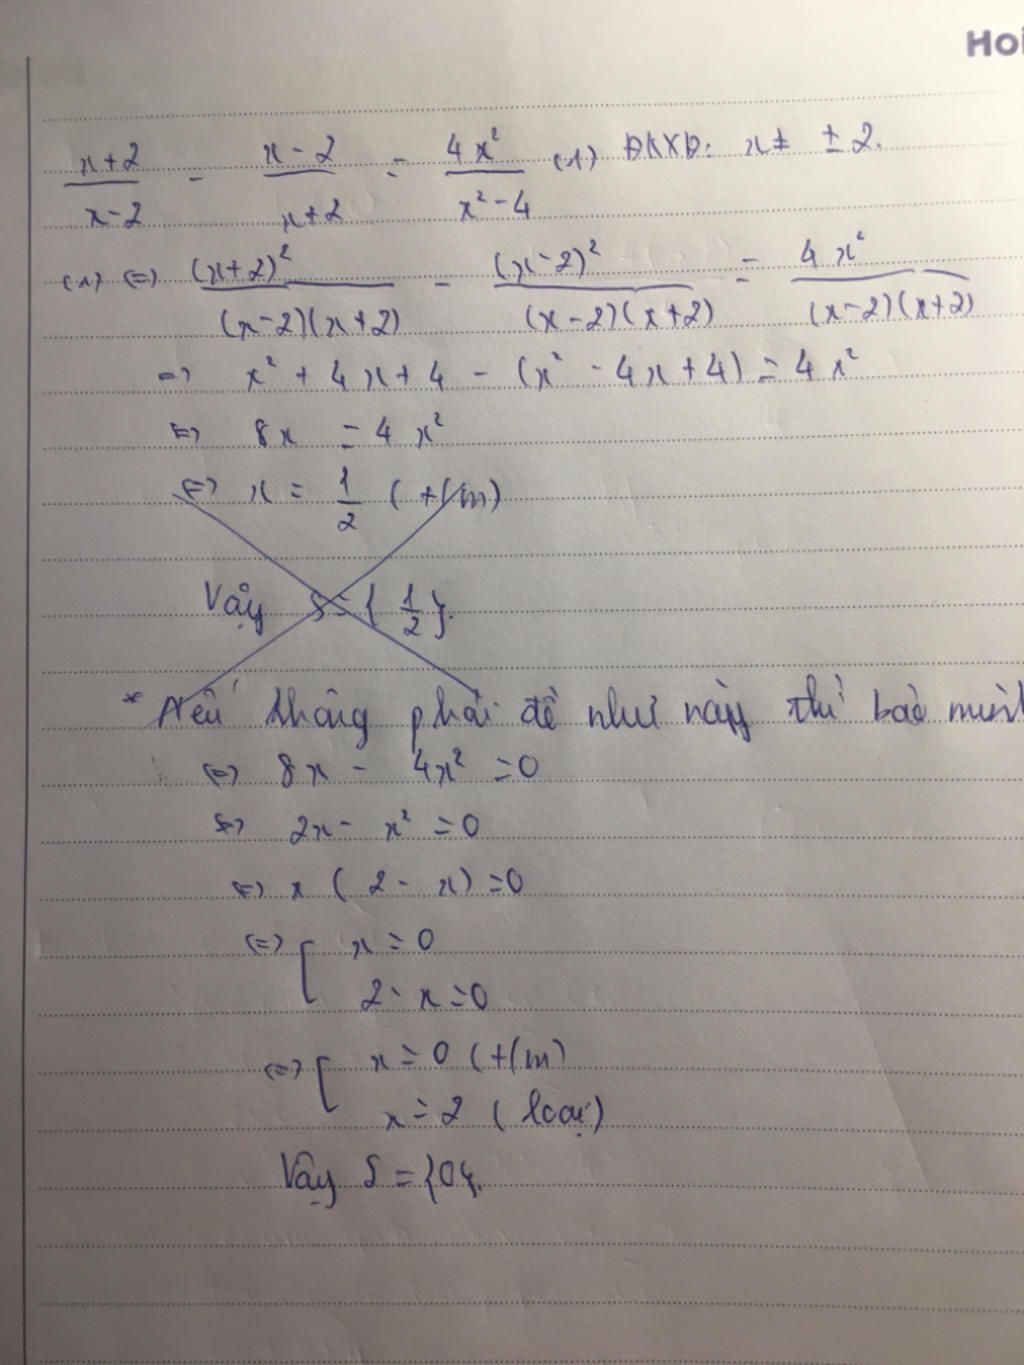 Hoi
x+2/x-2 - x-2/x+2 = 4x²/x²-4 (1) ĐKXĐ: x ≠ ±2.
(1) (=) (x+2)²/(x-2)(x+2) - (x-2)²/(x-2)(x+2) = 4x²/(x-2)(x+2)
=> x² + 4x + 4 - (x² - 4x + 4) = 4x²
<=> 8x = 4x²
<=> x = 1/2 (t/m)
Vậy S = { 1/2 }.
* Nếu không phải đề như này thì bảo mình
<=> 8x - 4x² = 0
<=> 2x - x² = 0
<=> x ( 2 - x) = 0
<=> [ x = 0
2 - x = 0
<=> [ x = 0 (t/m)
x = 2 ( loại)
Vậy S = {0}.